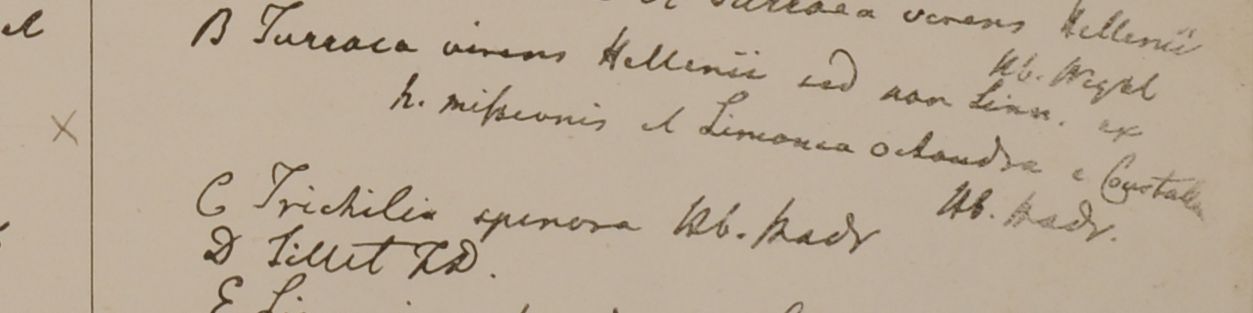 et Turraea virens Hellenii
B Turraea virens Hellenii sed non Linn. ex
Hb.
h. missionis et Limonia octandra e
C Trichilia spinosa Hb. Madr
Hb. Madr.
D Tillet H.D.
E